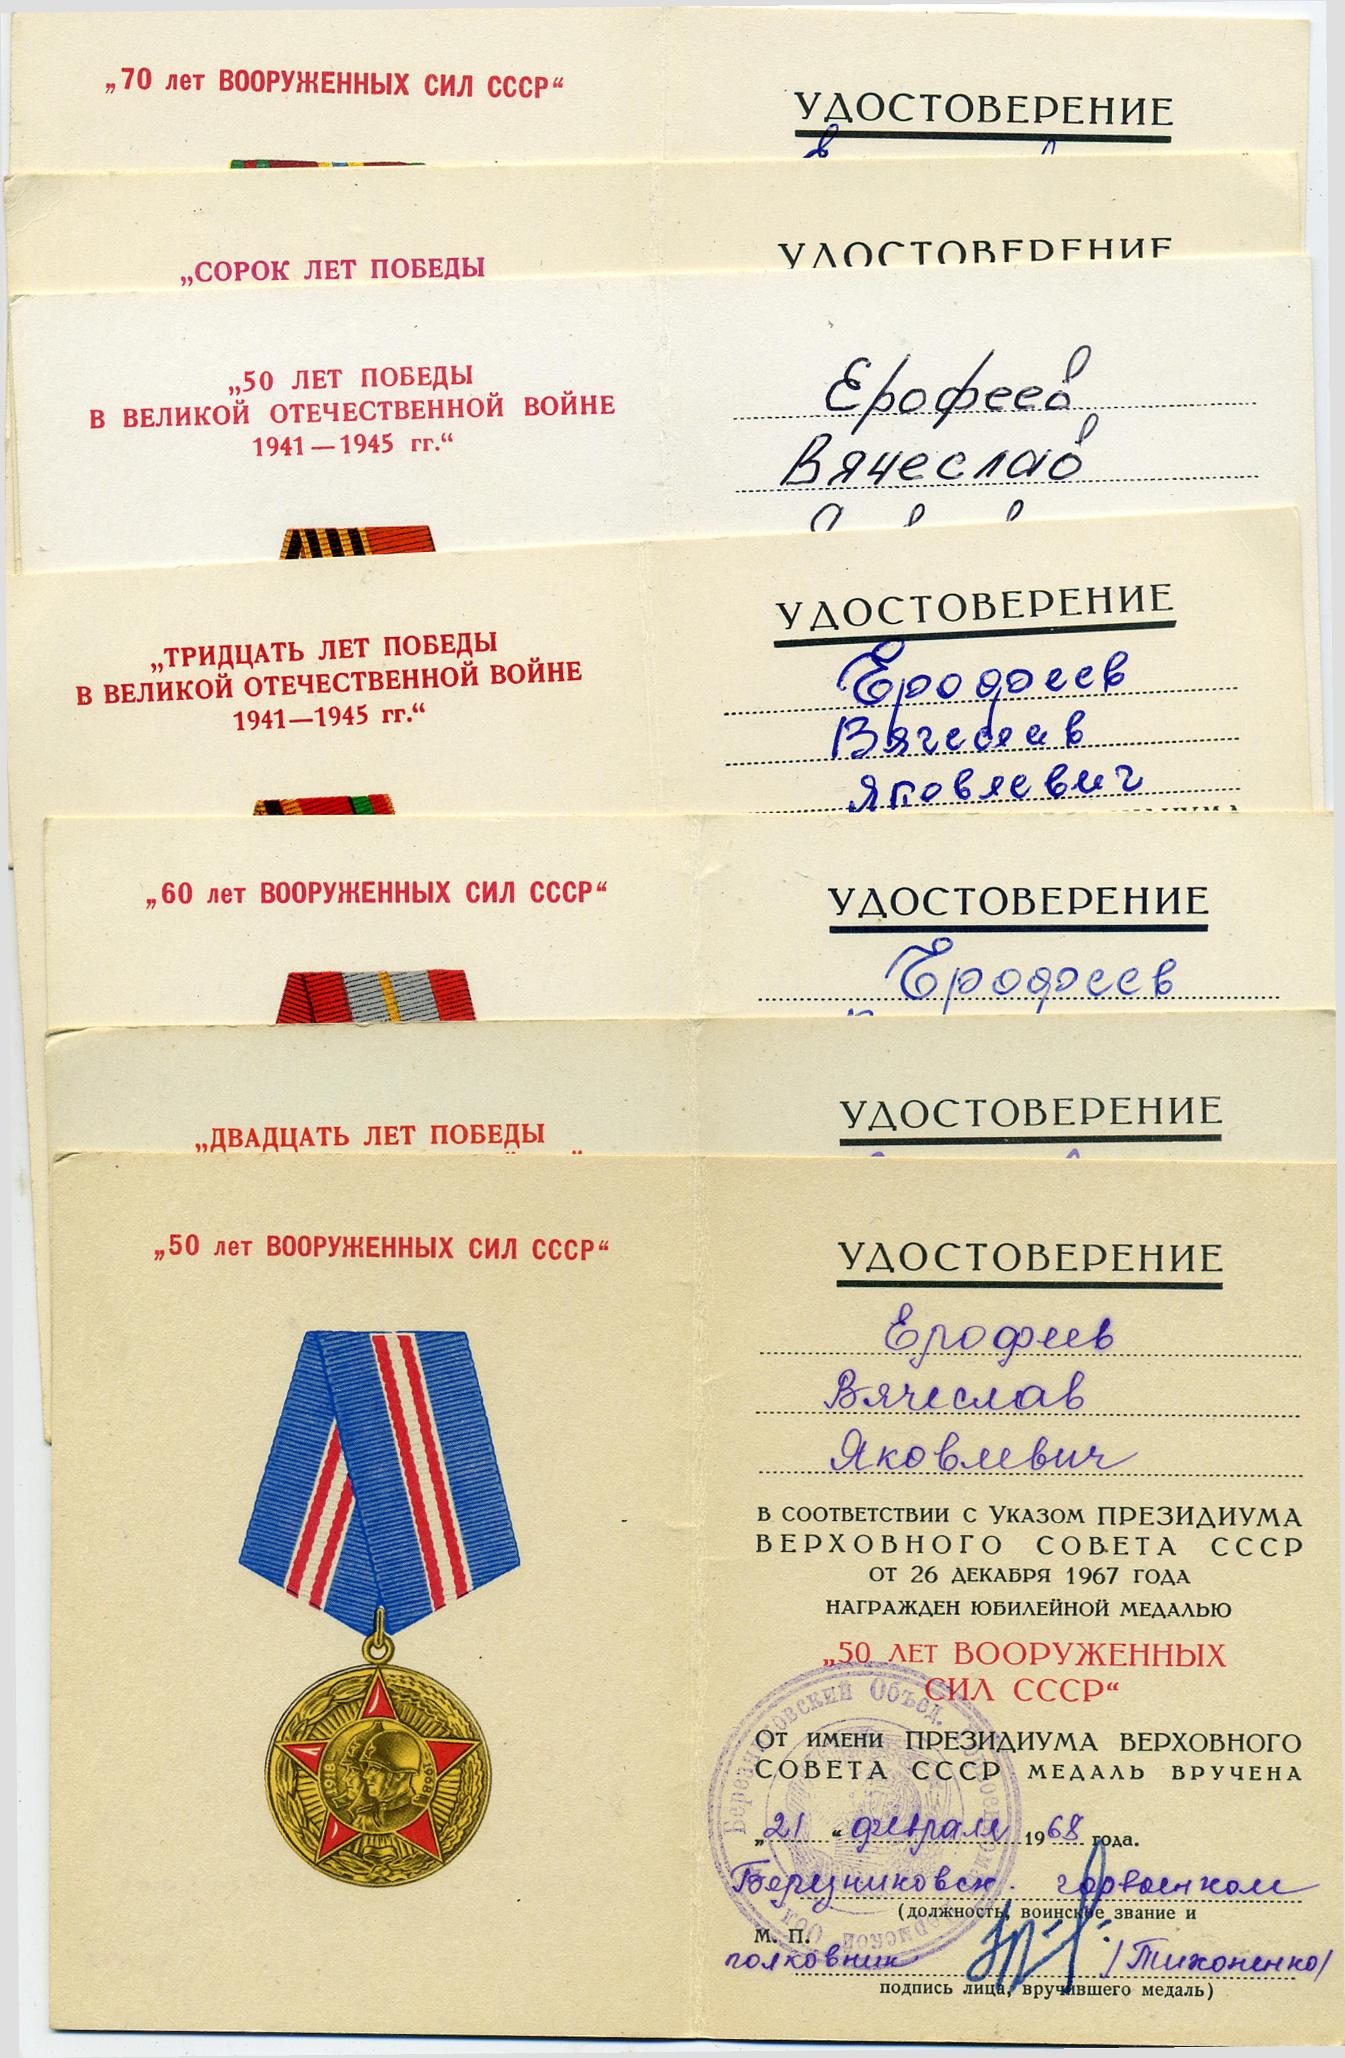 „70 лет ВООРУЖЕННЫХ СИЛ СССР“
УДОСТОВЕРЕНИЕ
„СОРОК ЛЕТ ПОБЕДЫ
УДОСТОВЕРЕНИЕ
„50 ЛЕТ ПОБЕДЫ
В ВЕЛИКОЙ ОТЕЧЕСТВЕННОЙ ВОЙНЕ
1941—1945 гг.“
Ерофеев
Вячеслав
„ТРИДЦАТЬ ЛЕТ ПОБЕДЫ
В ВЕЛИКОЙ ОТЕЧЕСТВЕННОЙ ВОЙНЕ
1941—1945 гг.“
УДОСТОВЕРЕНИЕ
Ерофеев
Вячеслав
Яковлевич
„60 лет ВООРУЖЕННЫХ СИЛ СССР“
УДОСТОВЕРЕНИЕ
Ерофеев
„ДВАДЦАТЬ ЛЕТ ПОБЕДЫ
УДОСТОВЕРЕНИЕ
„50 лет ВООРУЖЕННЫХ СИЛ СССР“
1918 1968
УДОСТОВЕРЕНИЕ
Ерофеев
Вячеслав
Яковлевич
В СООТВЕТСТВИИ С УКАЗОМ ПРЕЗИДИУМА
ВЕРХОВНОГО СОВЕТА СССР
ОТ 26 ДЕКАБРЯ 1967 ГОДА
НАГРАЖДЕН ЮБИЛЕЙНОЙ МЕДАЛЬЮ
„50 ЛЕТ ВООРУЖЕННЫХ
СИЛ СССР“
ОТ ИМЕНИ ПРЕЗИДИУМА ВЕРХОВНОГО
СОВЕТА СССР МЕДАЛЬ ВРУЧЕНА
„21“ февраля 1968 года.
Березниковск. горвоенком
(должность, воинское звание и
М. П.
полковник /Тихоненко/
подпись лица, вручившего медаль)
Березниковский Объед.